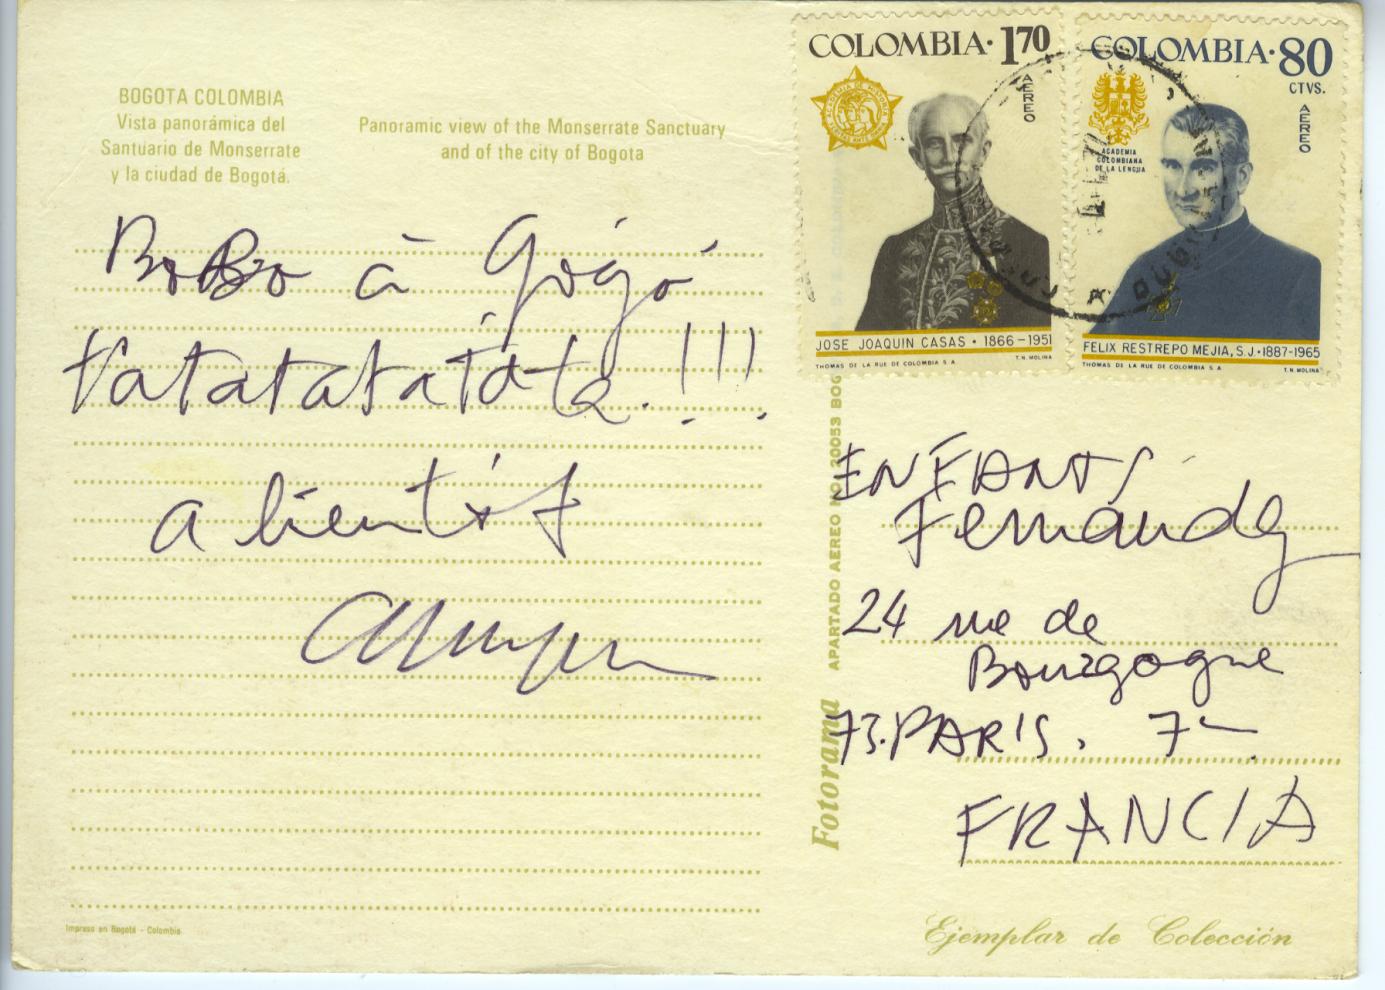 BOGOTA COLOMBIA
Vista panorámica del
Santuario de Monserrate
y la ciudad de Bogotá.
Panoramic view of the Monserrate Sanctuary
and of the city of Bogota
COLOMBIA·170
AEREO
JOSE JOAQUIN CASAS · 1866-1951
THOMAS DE LA RUE DE COLOMBIA S A
T.N. MOLINA
COLOMBIA·80
CTVS.
AEREO
ACADEMIA
COLOMBIANA
DE LA LENGUA
FELIX RESTREPO MEJIA, S.J.·1887-1965
THOMAS DE LA RUE DE COLOMBIA S A
T.N. MOLINA
BoBo à Gógó
tatatatatata.!!!
a bientôt
ENFANTS
Fernandez
24 rue de
Bourgogne
73.PARIS. 7
FRANCIA
Fotorama
APARTADO AEREO NO. 20053 BOG
Ejemplar de Colección
Impreso en Bogotá - Colombia